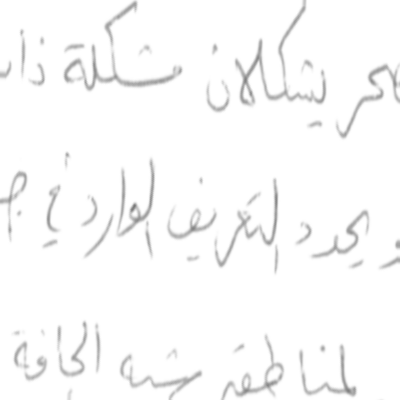 يشكلان مشكلة ذات
ويحدد التعريف الوارد في
لمناطق شبه الجافة